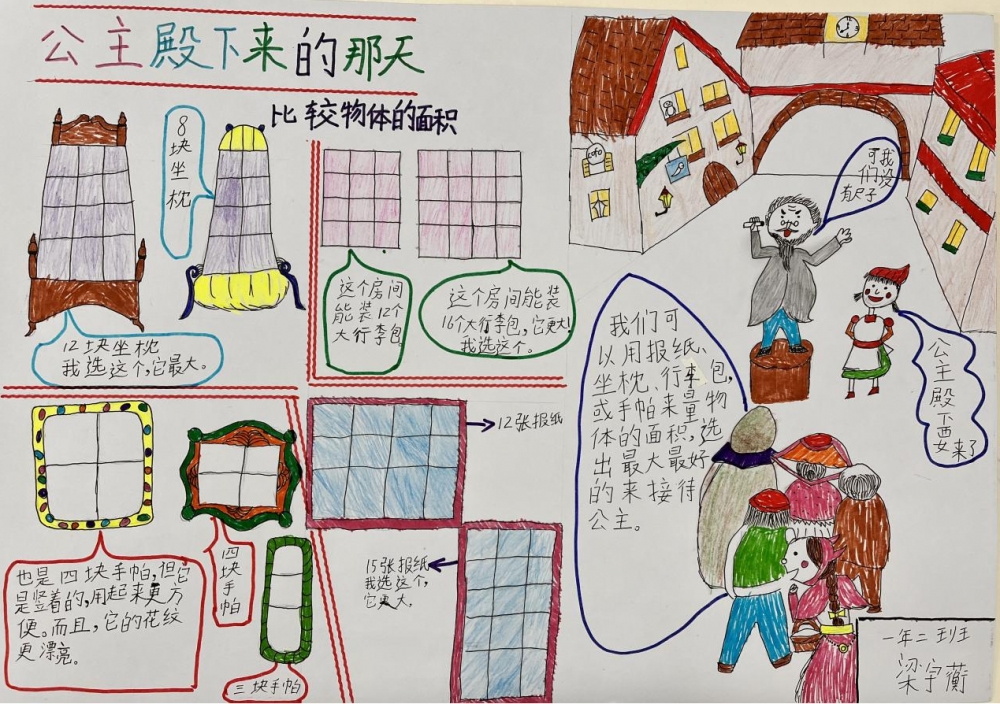 公主殿下来的那天
比较物体的面积
8块坐枕
12块坐枕
我选这个,它最大。
这个房间
能装12个
大行李包
这个房间能装
16个大行李包,它更大!
我选这个。
12张报纸
15张报纸
我选这个,
它更大。
也是四块手帕,但它
是竖着的,用起来更方
便。而且,它的花纹
更漂亮。
四块手帕
三块手帕
可我
们没
有尺子
公主殿下要来了
我们可
以用报纸、
坐枕、行李包,
或手帕来量物
体的面积,选
出最大最好
的来接待
公主。
一年二班
梁宇蘅